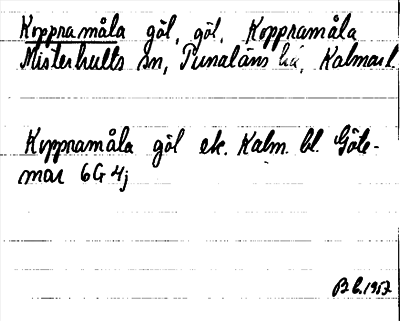 Koppramåla göl, göl, Koppramåla
Misterhults sn, Tunaläns hd, Kalmar l
Koppramåla göl ek. Kalm. bl. Göte-
mar 6G 4j
1957